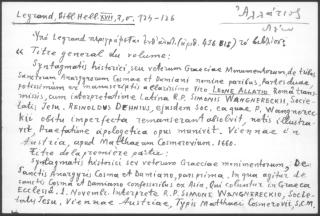 Legrand, Bibl. Hell. XVII, 2, σ. 124-126
Ἀλλάτιος
Λέων
Ὑπὸ Legrand περιγράφεται
« Titre general du volume:
Syntagmatis historici, seu veterum Graeciae Monumentorum, de tribus
Sanctorum Anargyrorum Cosmae et Damiani nomine paribus, Partes duae
potissimum ex manuscriptis allatis a viro LEONE ALLATIO Roma trans-
missis, cum interpretatione latina R.P. SIMONIS WANGNERECKII, Socie-
tatis Jesu. REINOLDUS DEHNIUS, ejusdem Soc. ea quae P. Wangnerec-
kii obitu imperfecta remanserant absolvit, notis illustra-
vit. Praefatione apologetica opus munivit. Viennae in
Austria, apud Matthaeum Cosmerovium. 1660.
Titre de la première partie:
Syntagmatis historici seu veterum Graeciae monimentorum, De
Sanctis Anargyris Cosma et Damiano, pars prima. In qua agitur de
Sanctis Cosma et Damiano confessoribus ex Asia, qui coluntur in Graeca
Ecclesia 1. Novembri. Interprete R.P. SIMONE WANGNERECKIO, Socie-
tatis Jesu, Viennae Austriae, Typis Matthaei Cosmerovii, S.C.M.